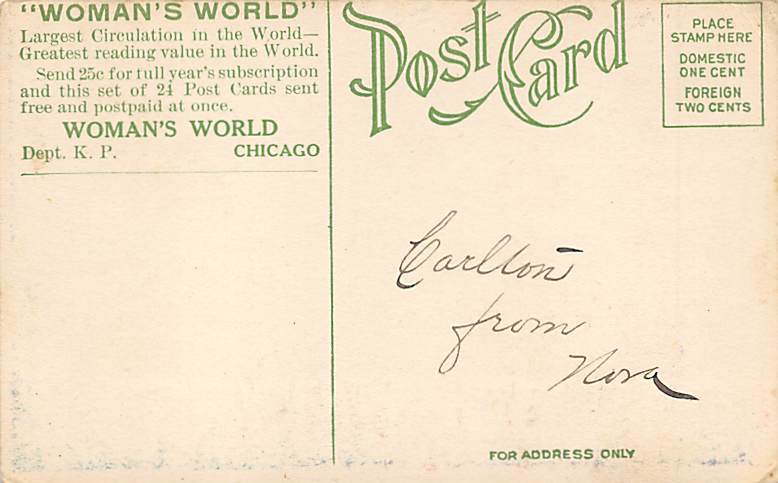 "WOMAN'S WORLD"
Largest Circulation in the World—
Greatest reading value in the World.
Send 25c for full year's subscription
and this set of 24 Post Cards sent
free and postpaid at once.
WOMAN'S WORLD
Dept. K. P. CHICAGO
Post Card
PLACE
STAMP HERE
DOMESTIC
ONE CENT
FOREIGN
TWO CENTS
Carlton
from
Nora
FOR ADDRESS ONLY